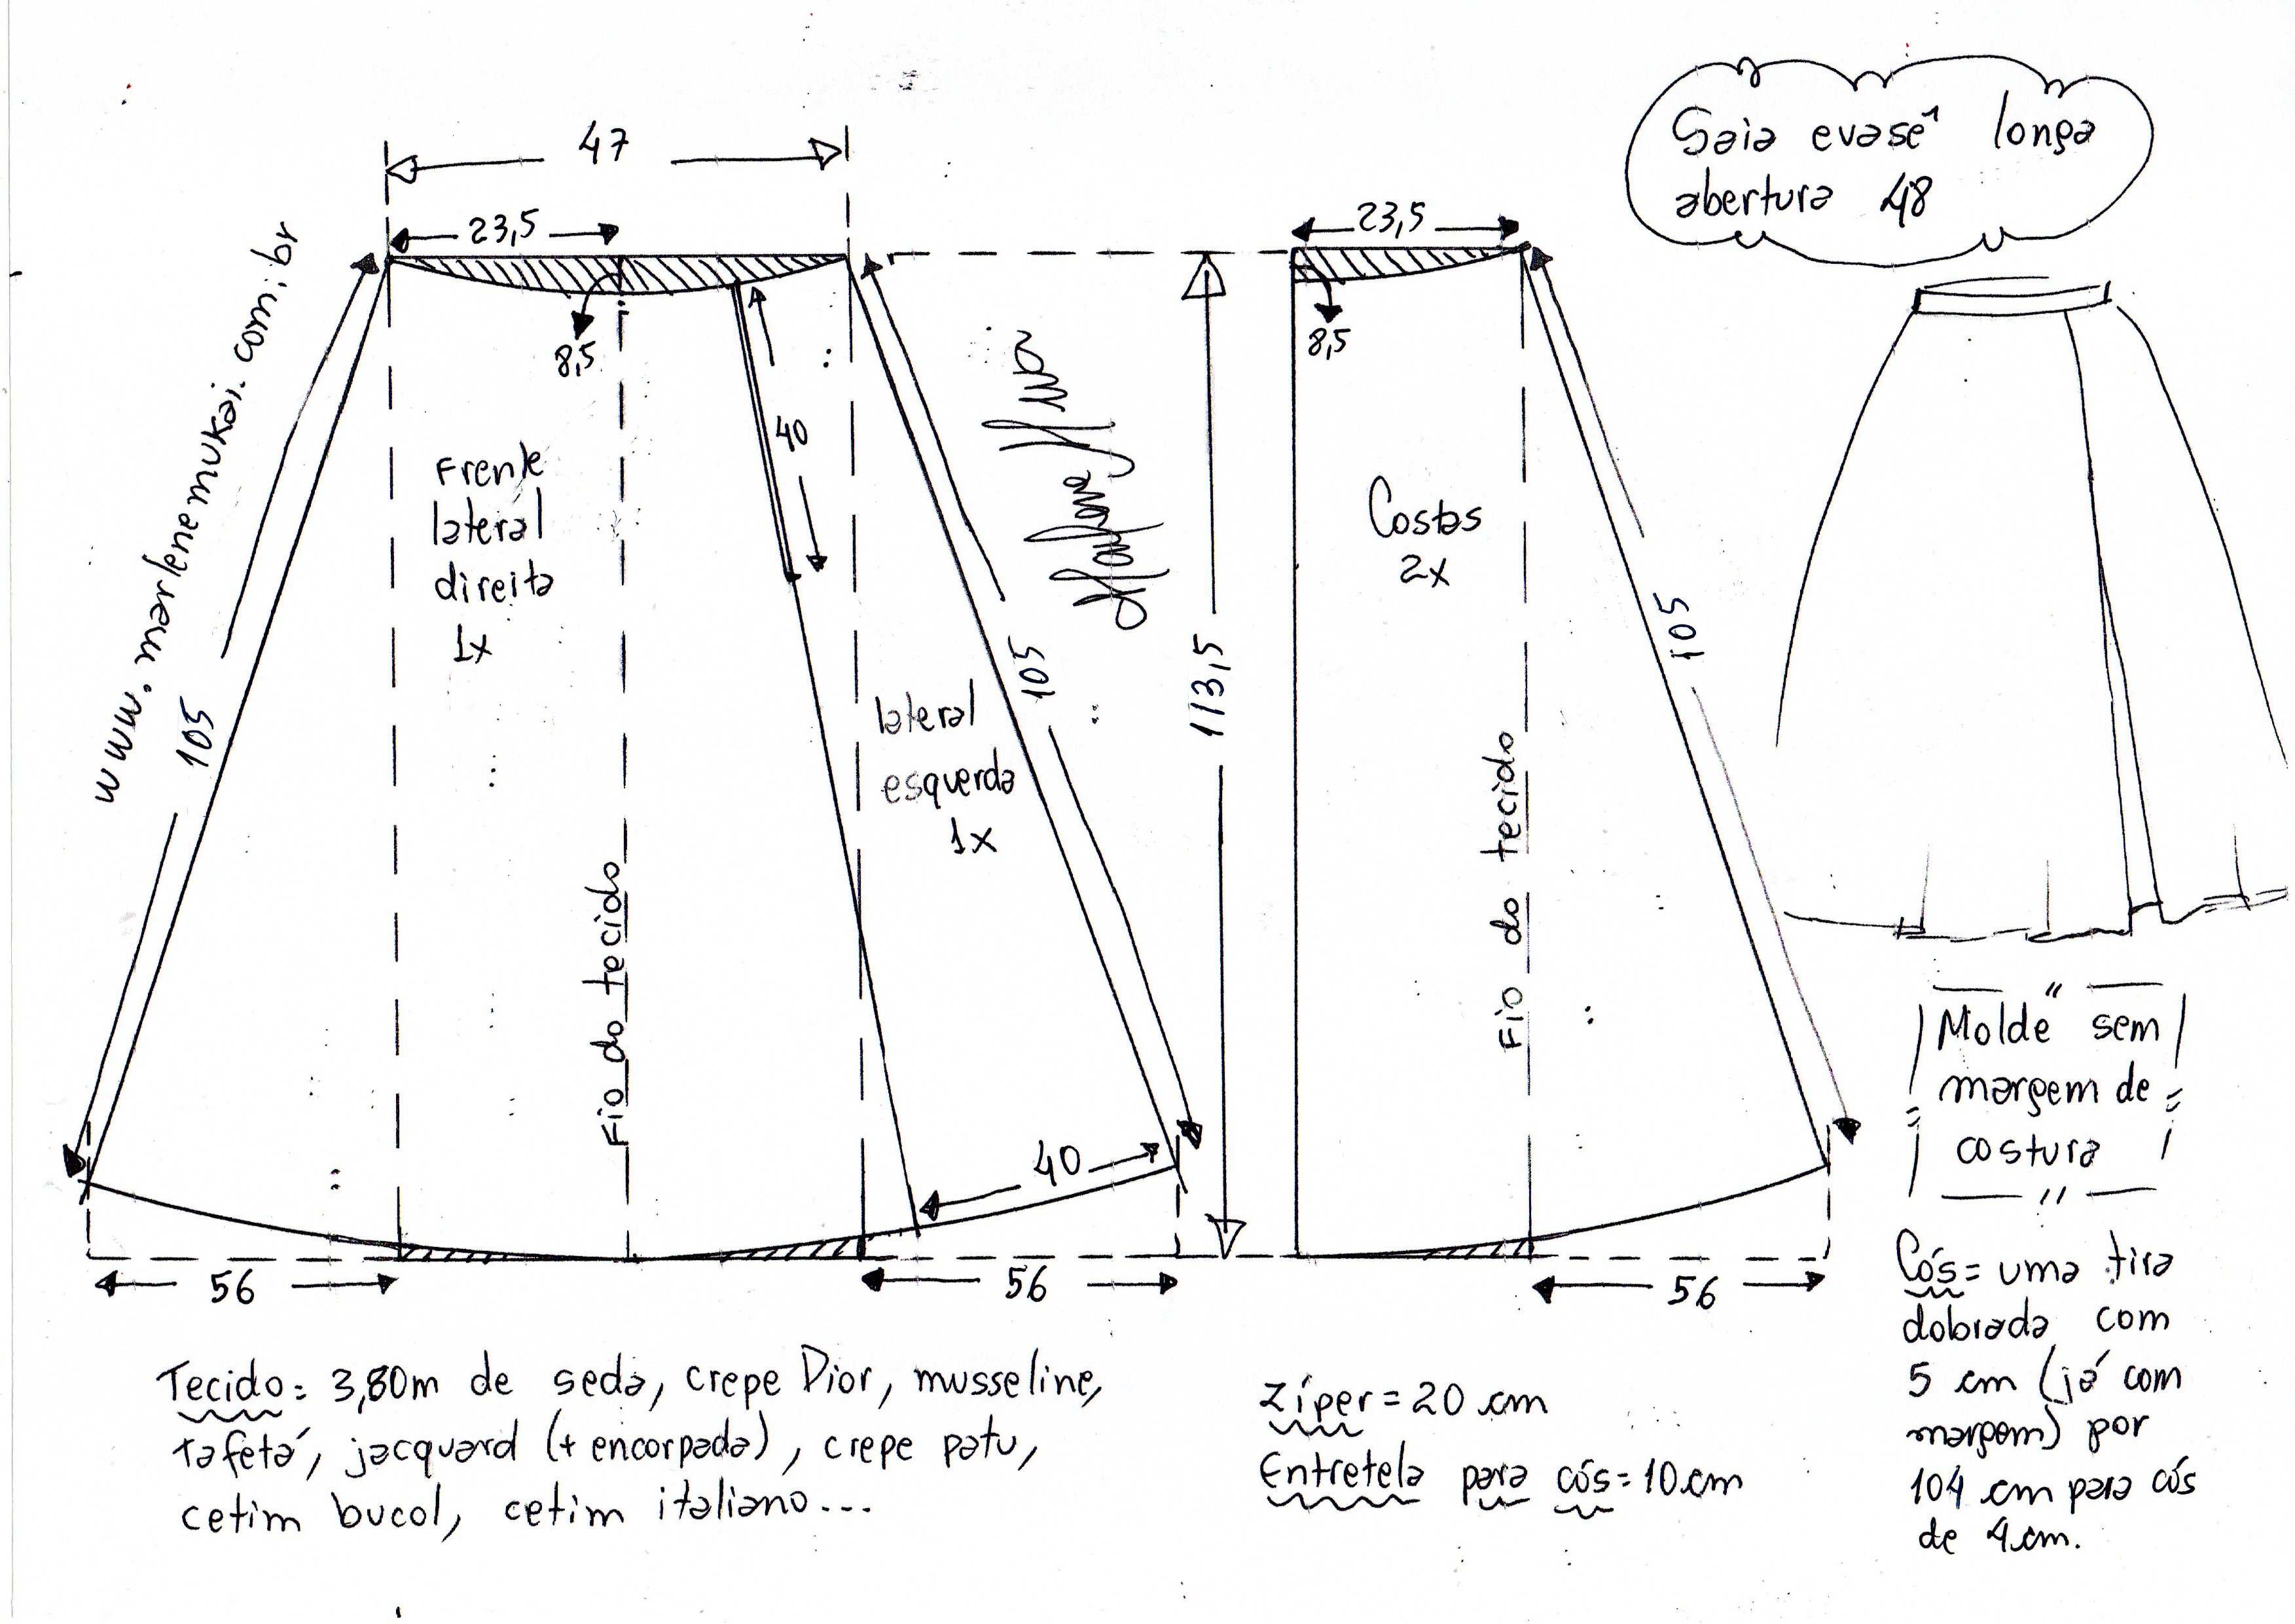 Saia evasê longa
abertura 48
47
23,5
8,5
40
www.marlenemukai.com.br
105
Frente
lateral
direita
1x
Fio do tecido
lateral
esquerda
1x
105
40
56
56
113,5
23,5
8,5
Costas
2x
Fio do tecido
105
56
"Molde sem
margem de
costura"
Cós= uma tira
dobrada com
5 cm (já com
margem) por
104 cm para cós
de 4 cm.
Tecido= 3,80m de seda, crepe Dior, musseline,
tafetá, jacquard (+ encorpada), crepe patu,
cetim bucol, cetim italiano...
Zíper = 20 cm
Entretela para cós = 10 cm